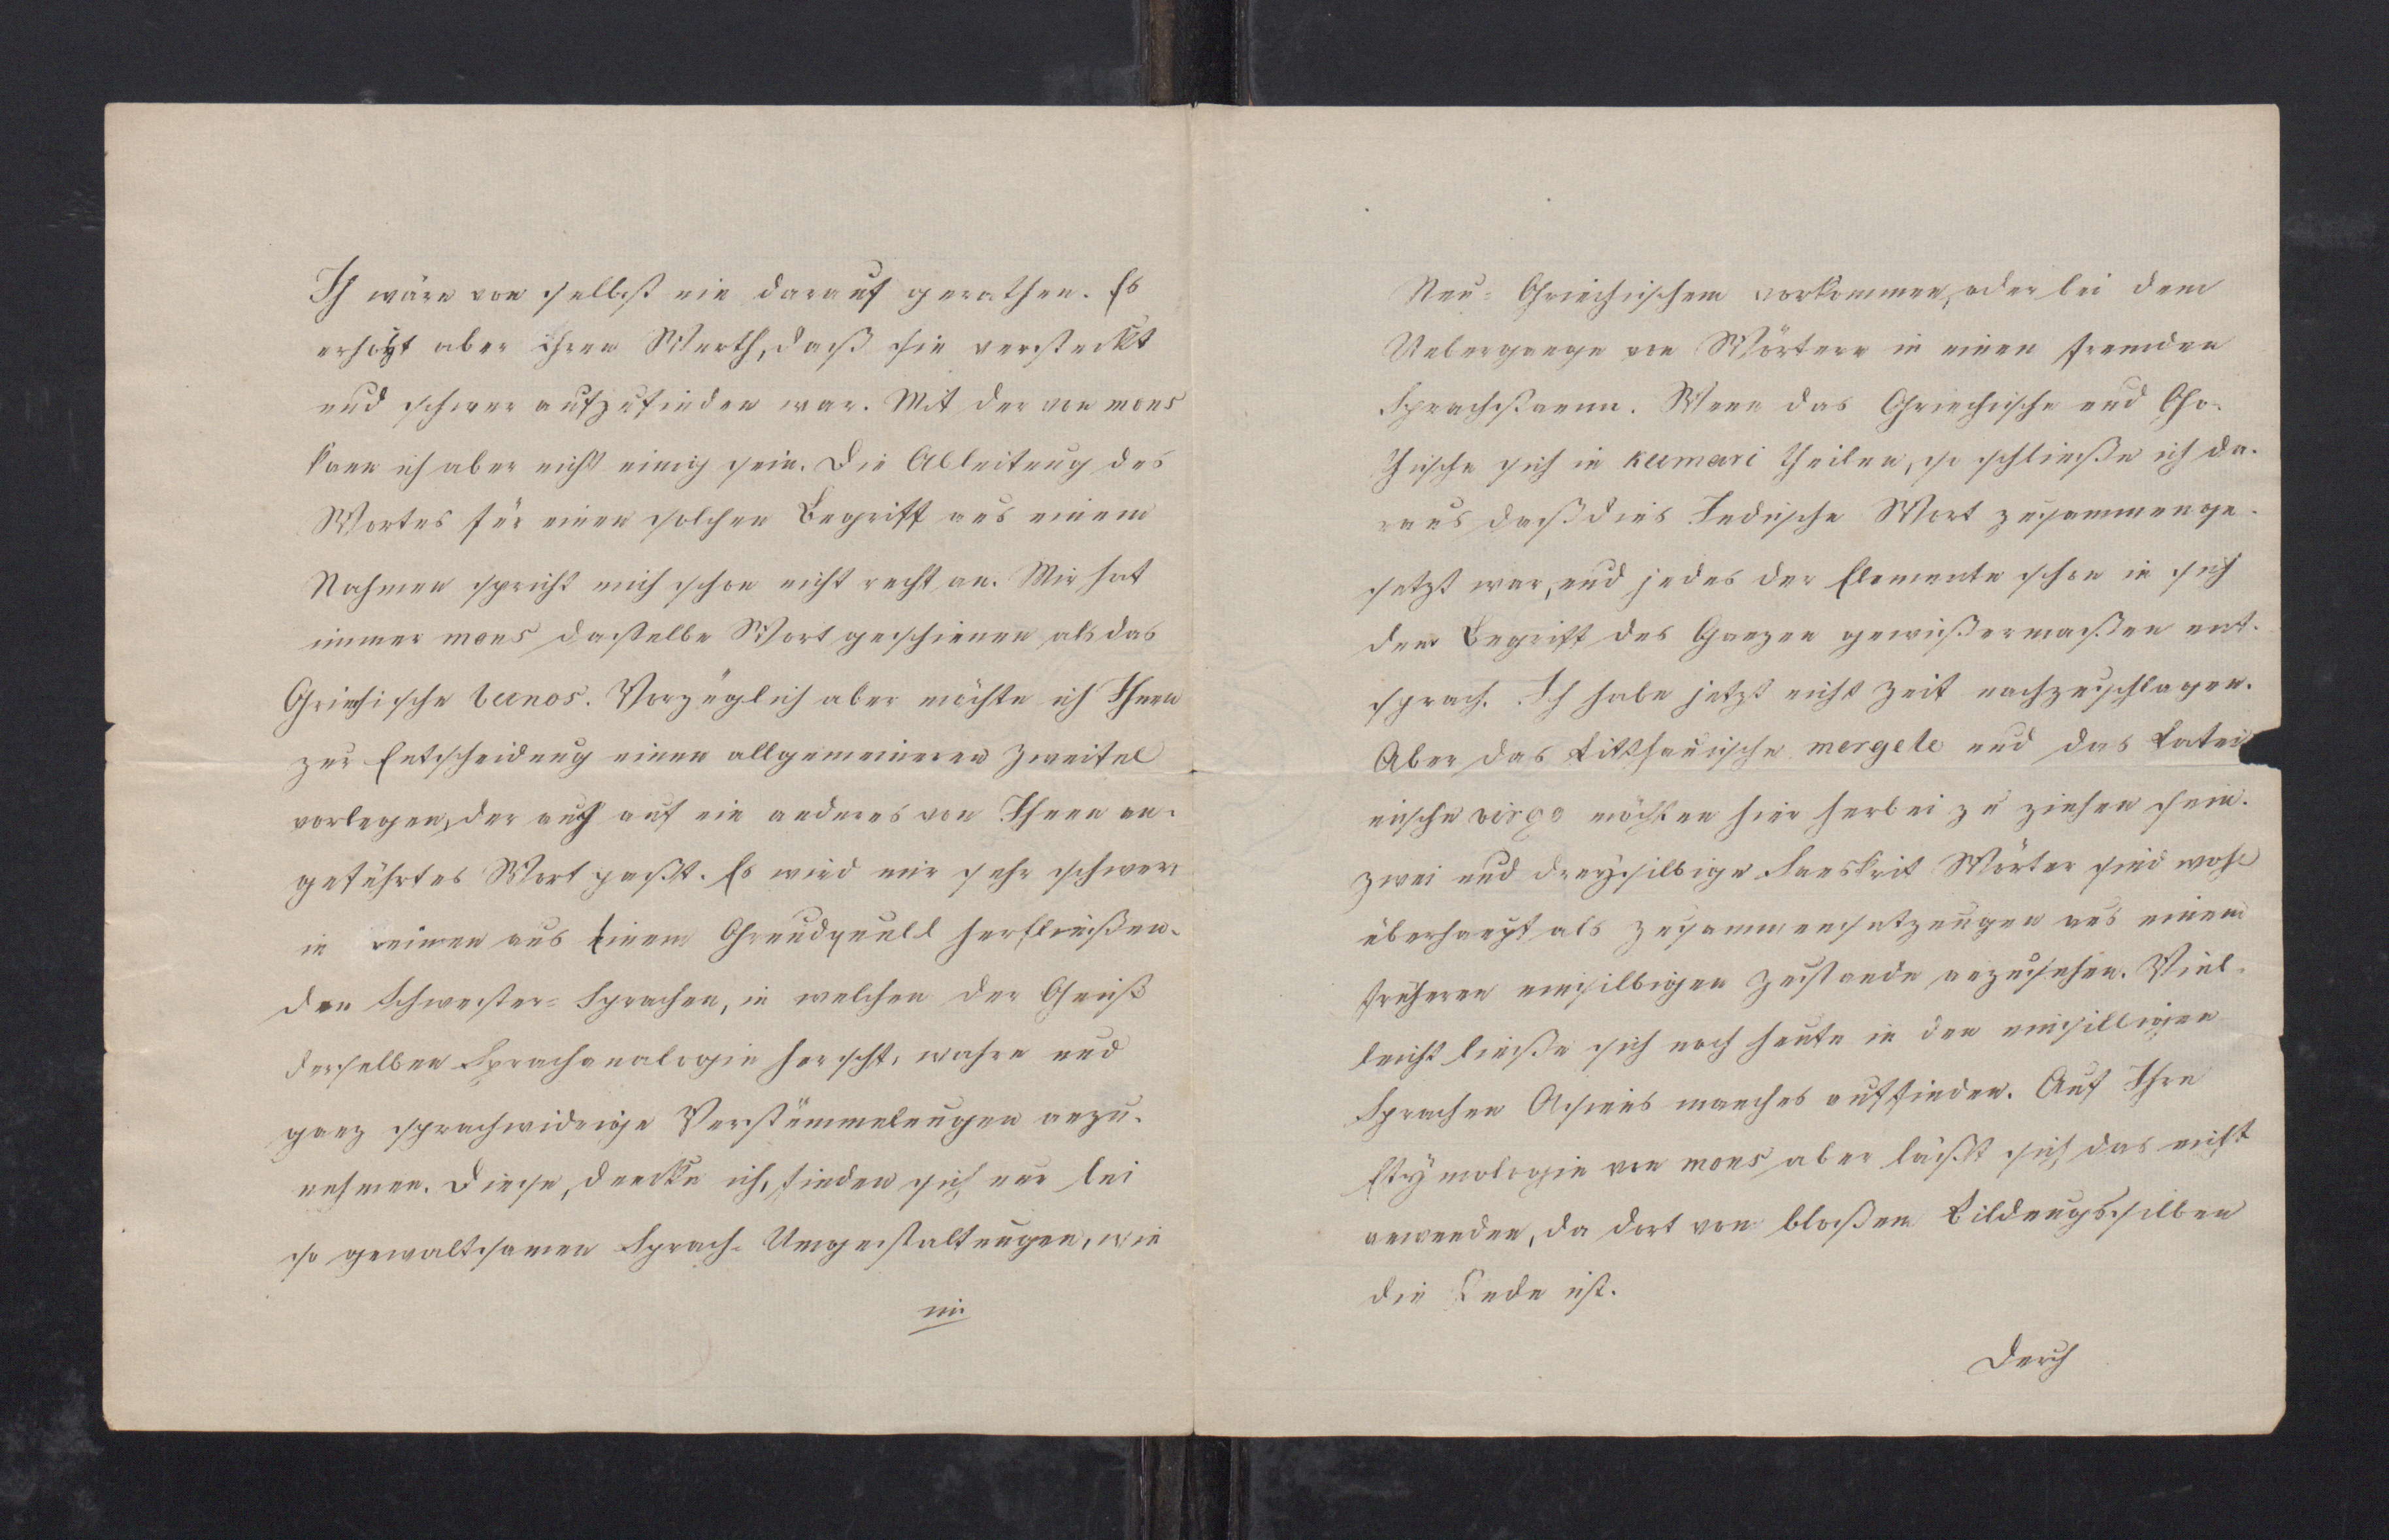 Ich wäre von selbst nie darauf gerathen. Es
erhöht aber ihren Werth, daß sie versteckt
und schwer aufzufinden war. Mit der von mons
kann ich aber nicht einig sein. Die Ableitung des
Wortes für einen solchen Begriff aus einem
Nahmen spricht mich schon nicht recht an. Mir hat
immer mons dasselbe Wort geschienen als das
Griechische bunos. Vorzüglich aber möchte ich Ihnen
zur Entscheidung einen allgemeineren Zweifel
vorlegen, der auch auf ein anderes von Ihnen an-
geführtes Wort paßt. Es wird mir sehr schwer
in reinen aus Einem Grundquell herfließen-
den Schwester-Sprachen, in welchen der Geist
derselben Sprachanalogie herscht, wahre und
ganz sprachwidrige Verstümmelungen anzu-
nehmen. Diese, dencke ich, finden sich nur bei
so gewaltsamen Sprach-Umgestaltungen, wie
im
Neu-Griechischem vorkommen, oder bei dem
Uebergange von Wörtern in einen fremden
Sprachstamm. Wenn das Griechische und Go-
thische sich in kumari theilen, so schließe ich da-
raus daß dies Indische Wort zusammenge-
setzt war, und jedes der Elemente schon in sich
dem Begriff des Ganzen gewißermaßen ent-
sprach. Ich habe jetzt nicht Zeit nachzuschlagen.
Aber das Litthauische mergele und das Latei
nische virgo möchten hier herbei zu ziehen sein.
Zwei und dreysilbige Sanskrit Wörter sind wohl
überhaupt als Zusammensetzungen aus einem
früheren einsilbigen Zustande anzusehen. Viel-
leicht ließe sich noch heute in den einsilbigen
Sprachen Asiens manches auffinden. Auf Ihre
Etymologie von mons aber läßt sich das nicht
anwenden, da dort von bloßen Bildungssilben
die Rede ist.
Durch